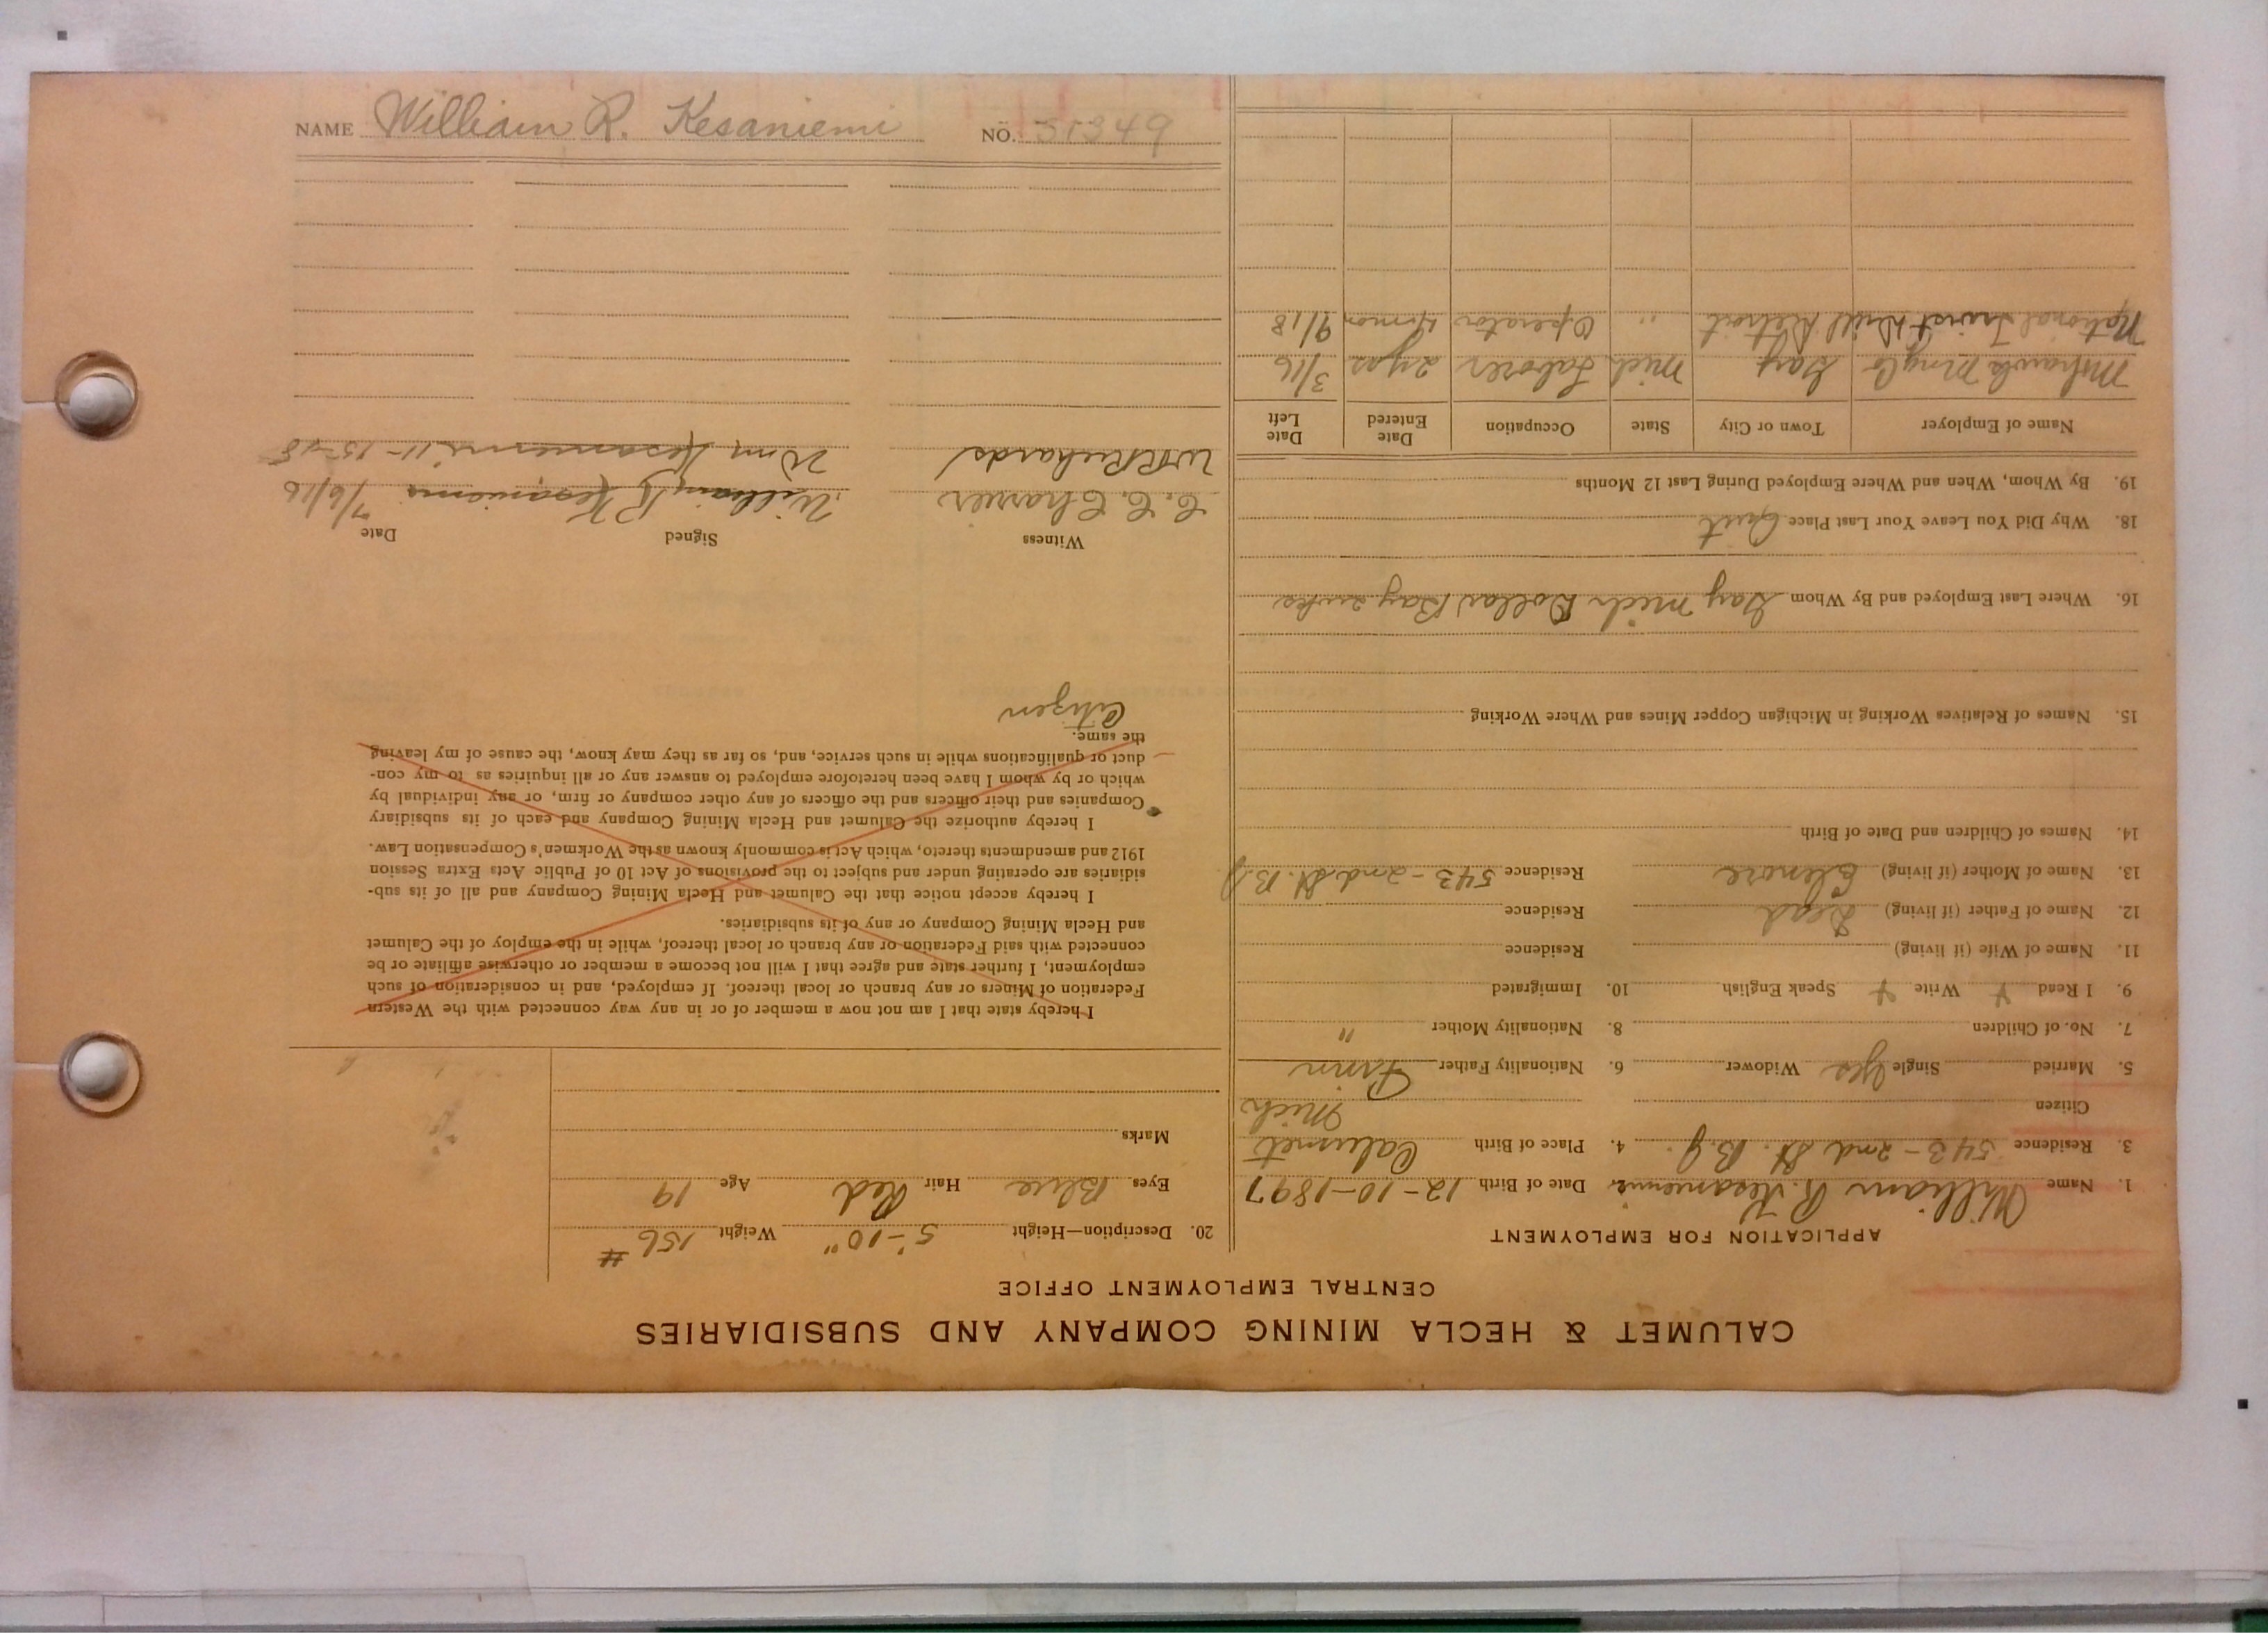 CALUMET & HECLA MINING COMPANY AND SUBSIDIARIES
CENTRAL EMPLOYMENT OFFICE
APPLICATION FOR EMPLOYMENT
1. Name William R. Kesaniemi Date of Birth 12-10-1897
3. Residence 543-2nd St. B.J. 4. Place of Birth Calumet
Mich
Citizen
5. Married Single Yes Widower 6. Nationality Father Finn
7. No. of Children 8. Nationality Mother "
9. I Read + Write + Speak English 10. Immigrated
11. Name of Wife (if living) Residence
12. Name of Father (if living) Dead Residence
13. Name of Mother (if living) Elenore Residence 543-2nd St. B.J.
14. Names of Children and Date of Birth
15. Names of Relatives Working in Michigan Copper Mines and Where Working
16. Where Last Employed and By Whom Gay Mich Dollar Bay 2 wks
18. Why Did You Leave Your Last Place Quit
19. By Whom, When and Where Employed During Last 12 Months
Name of Employer Town or City State Occupation Date Entered Date Left
Mohawk Mng Co Gay Mich Laborer 2 yrs 3/16
National Twist Drill Detroit " Operator 4 mos 9/18
20. Description—Height 5'-10" Weight 156 #
Eyes Blue Hair Red Age 19
Marks
I hereby state that I am not now a member of or in any way connected with the Western
Federation of Miners or any branch or local thereof. If employed, and in consideration of such
employment, I further state and agree that I will not become a member or otherwise affiliate or be
connected with said Federation or any branch or local thereof, while in the employ of the Calumet
and Hecla Mining Company or any of its subsidiaries.
I hereby accept notice that the Calumet and Hecla Mining Company and all of its sub-
sidiaries are operating under and subject to the provisions of Act 10 of Public Acts Extra Session
1912 and amendments thereto, which Act is commonly known as the Workmen's Compensation Law.
I hereby authorize the Calumet and Hecla Mining Company and each of its subsidiary
Companies and their officers and the officers of any other company or firm, or any individual by
which or by whom I have been heretofore employed to answer any or all inquiries as to my con-
duct or qualifications while in such service, and, so far as they may know, the cause of my leaving
the same.
Citizen
Witness Signed Date
C. C. Charles William R Kesaniemi 7/6/16
WR Richards Wm Kesaniemi 11-15-18
NAME William R. Kesaniemi NO. 31349